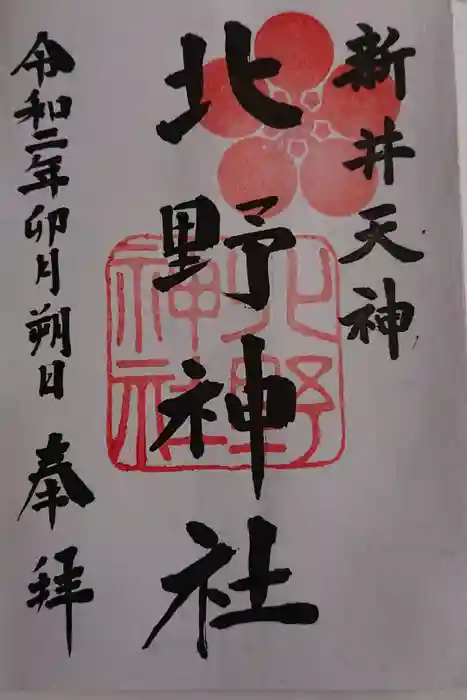 新井天神
北野神社
北野
神社
令和二年卯月朔日 奉拝